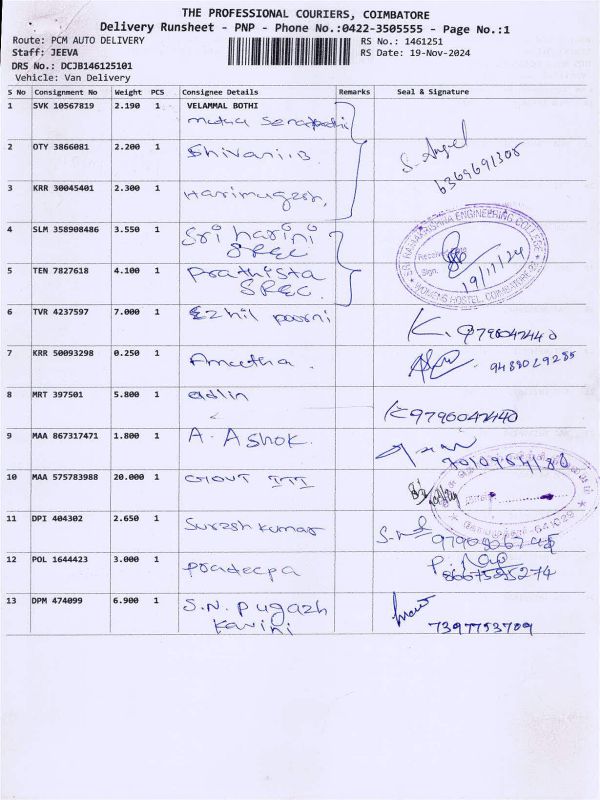 THE PROFESSIONAL COURIERS, COIMBATORE
Delivery Runsheet - PNP - Phone No.:0422-3505555 - Page No.:1
Route: PCM AUTO DELIVERY
RS No.: 1461251
Staff: JEEVA
RS Date: 19-Nov-2024
DRS No.: DCJB146125101
Vehicle: Van Delivery
S No Consignment No Weight PCS Consignee Details Remarks Seal & Signature
1 SVK 10567819 2.190 1 VELAMMAL BOTHI
2 OTY 3866081 2.200 1 Shivani.B. S. Angel
6369691308
3 KRR 30045401 2.300 1 Harimugesh.
4 SLM 358908486 3.550 1 Sri harini
SREC
SRI RAMAKRISHNA ENGINEERING COLLEGE
Sign. 19/11/24
WOMENS HOSTEL, COIMBATORE
5 TEN 7827618 4.100 1 Prathista
SREC.
6 TVR 4237597 7.000 1 Ezhil poorni K. 9796042440
7 KRR 50093298 0.250 1 Ameetha. 9488029285
8 MRT 397501 5.800 1 adlin K 9796042440
9 MAA 867317471 1.800 1 A. Ashok.
10 MAA 575783988 20.000 1 Govt ITI
641029
11 DPI 404302 2.650 1 Suresh kumar
12 POL 1644423 3.000 1 Pradeepa 8667595274
13 DPM 474099 6.900 1 S.N. Pugazh
Kavini
7397753709